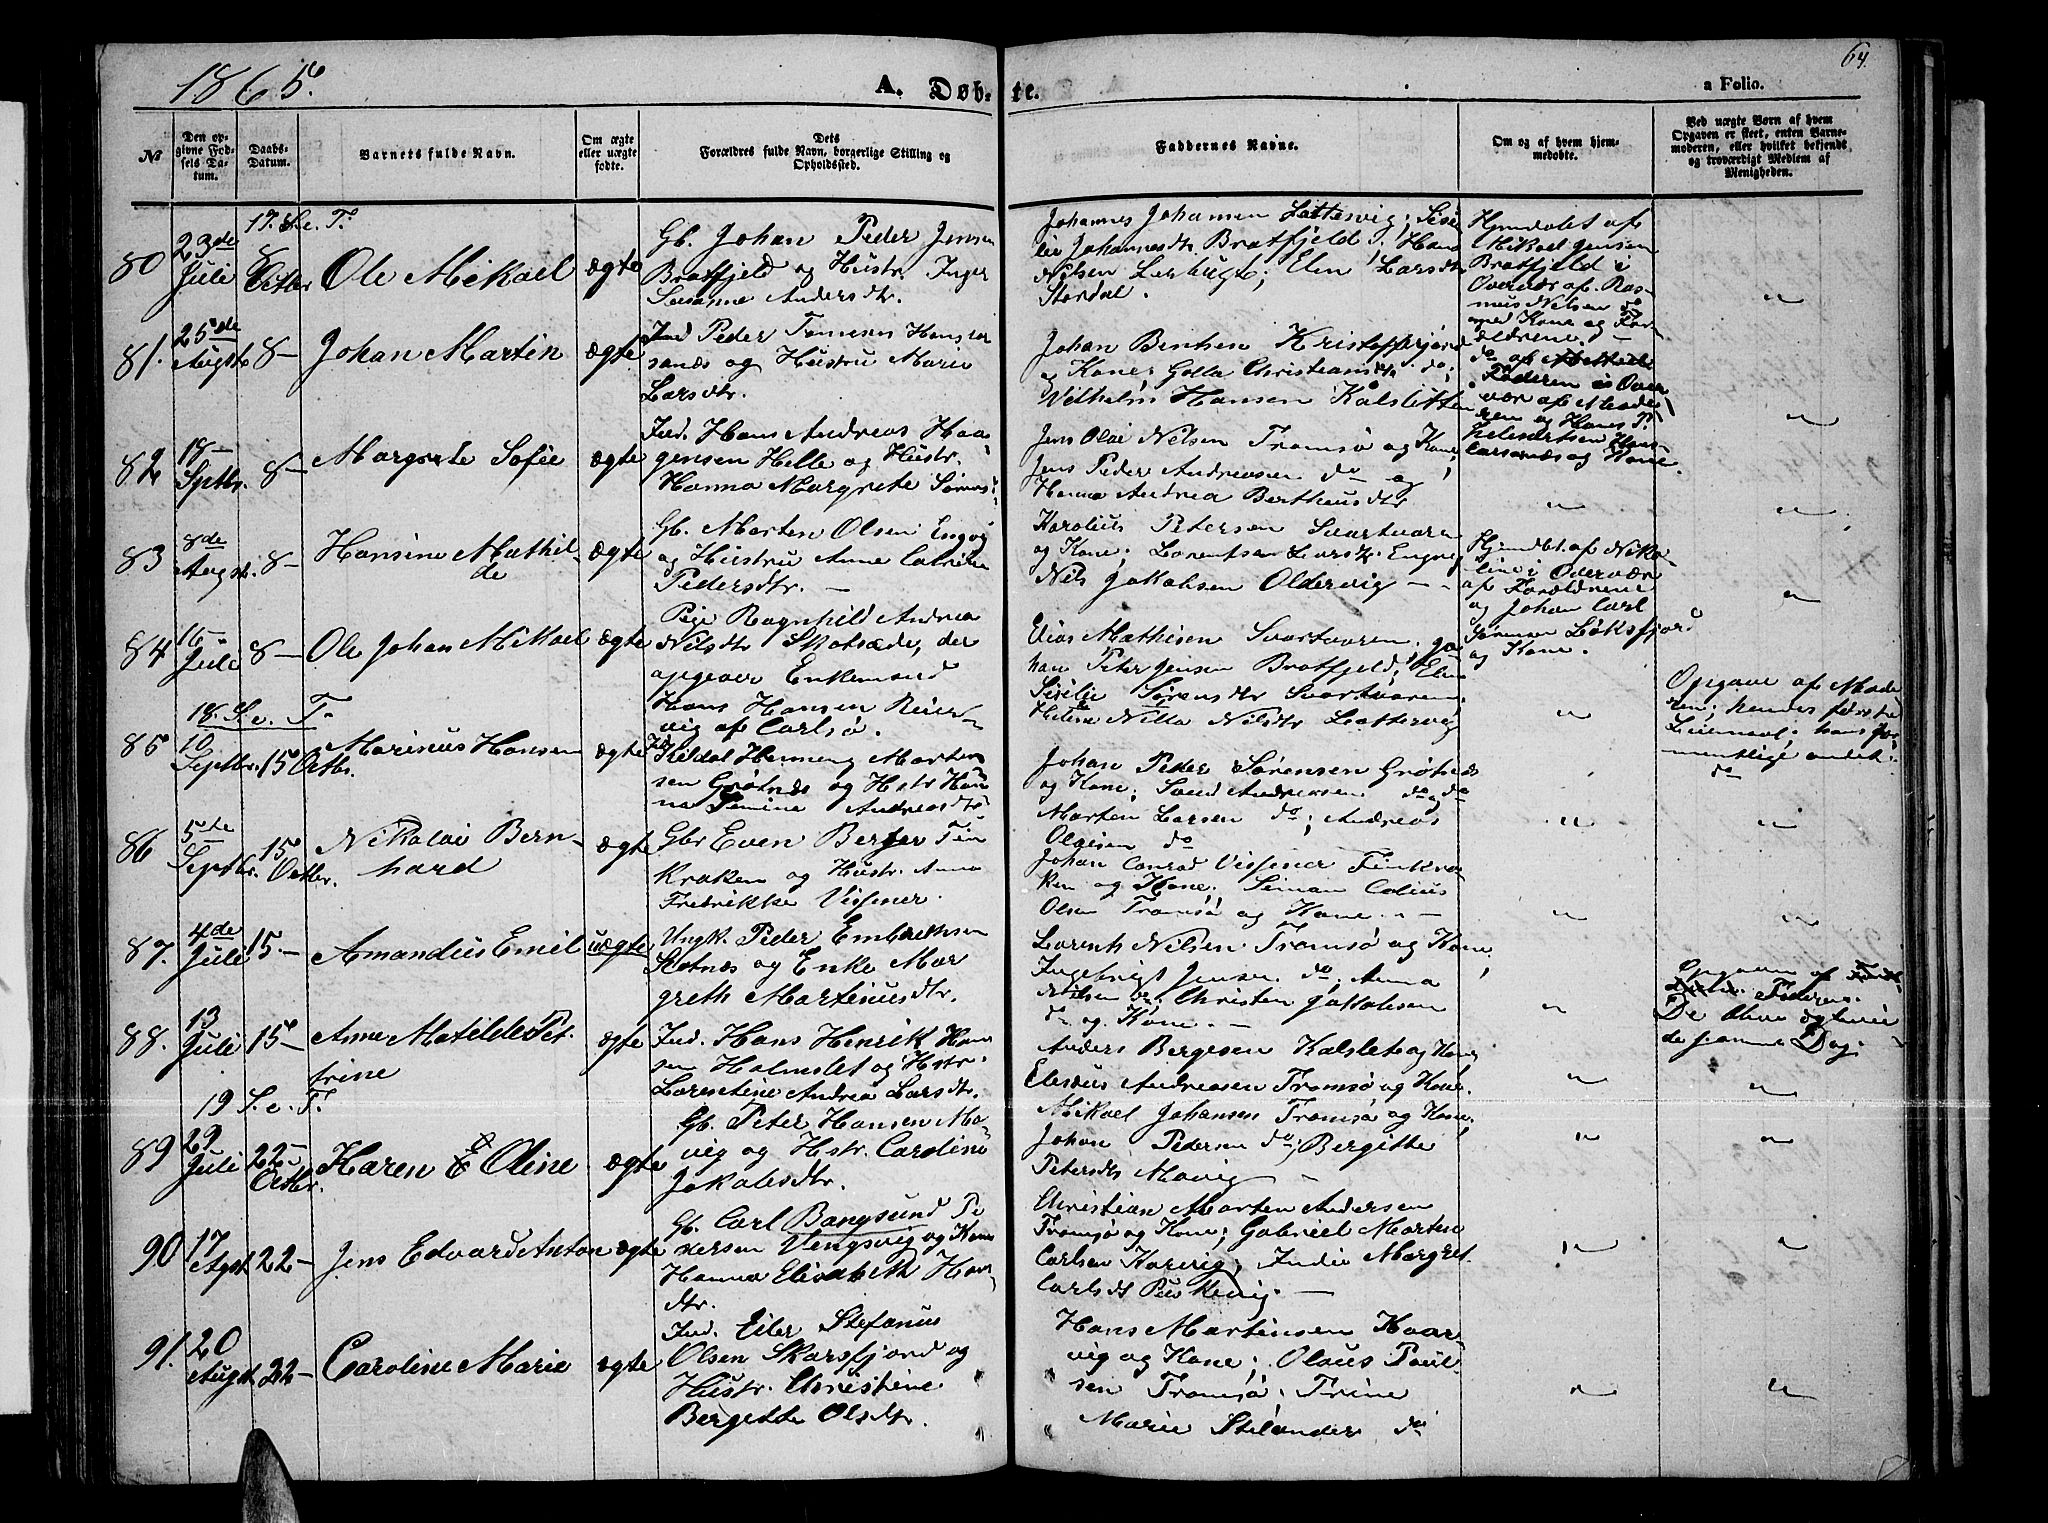 1865.
A. Døb-
te.
a Folio.
64.
№
Den op-
givne Fød-
sels Da-
tum.
Daabs-
Datum.
Barnets fulde Navn.
Om ægte
eller uægte
fødte.
Dets
Forældres fulde Navn, borgerlige Stilling og
Opholdssted.
Faddernes Navne.
Om og af hvem hjem-
medøbte.
Ved uægte Børn af hvem
Opgaven er skeet, enten Barne-
moderen, eller hvilket bekjendt
og troværdigt Medlem af
Menigheden.
17. S. e. T.
80
23de
Juli
8
Octbr
Ole Mikael
ægte
Gb. Johan Peder Jensen
Bratfjeld og Hustr. Inger
Susanna Andersdtr.
Johannes Johansen Lattervig; Sise
lie Johannesdtr Bratfjeld; Hans
Nilsen Lerbugt; Elen Larsdtr
Stordal.
Hjemdøbt af
Mikael Jensen
Bratfjeld i
Overvær af Ras-
mus Nilsen do
med Kone og For-
ældrene.
81.
25de
Augst
8-
Johan Martin
ægte
Ind. Peder Tomesen Hans lar
snæs og Hustru Marie
Larsdtr.
Johan Benthsen Kristoffer
og Kone; Golla Christiansdtr do;
Vilhelm Hansen Kalsletten
do af
Faderen i Over
vær af Mode
ren og Hans P.
og Kone.
82
18-
Sptbr.
8-
Margrete Sofie
ægte
Ind. Hans Andreas Haa-
gensen Helle og Hustr.
Hanna Margrete Simons-
Jens Olai Nilsen Tromsø og Kone;
Jens Peder Andreasen do og
Hanna Andrea Bertheusdtr
83
8de
Augst.
8-
Hansine Mathil-
de
ægte
Gb. Morten Olsen Engvig
og Hustru Anne Catrine
Pedersdtr. -
Karolius Petersen Svartvaren
og Kone; Lorentsen Larsdtr. Engvig
Nils Jakobsen Oldervig - -
Hjemdbt. af Niko
line i Overvær
af Forældrene
og Johan Carl
Sørensen Løksfjord
og Kone.
84
16-
Juli
8-
Ole Johan Mikael
ægte
Pige Ragnhild Andrea
Nilsdtr Skatsæde, der
opgiver Enkemand
Hans Hansen Reier
vig af Carlsø.
Elias Mathisen Svartvaren; Jo
han Peter Jensen Bratfjeld; Elen
Sisilie Sørensdtr Svartvaren
Helene Nilla Nilsdtr Lattervig
Opgave af Mode
ren; hennes første
Leiermaal; hans for
mentlige andet.
18. S. e. T.
85
10
Septbr.
15 Octbr.
Marinus Hansen
ægte
Kildal Henning Marten
sen Grøtnæs og Hstr Han
na Simine Andreasdtr
Johan Peder Sørensen Grøtnæs
og Kone; Andreasen do og do
Morten Larsen do; Andreas
Olaisen do
do
86
5te
Septbr.
15
Octbr.
Nikolai Bern-
hard
ægte
Gbr Even Berger Fin
kroken og Hustr. Anna
Fredrikke Vissener.
Johan Conrad Vissener Finkro
ken og Kone; Siman Colius
Olsen Tromsø og Kone. - -
87.
4de
Juli
15. -
Amandus Emil
uægte
Ungk. Peder Embretsen
Slotnæs og Enke Mar
greth Martinusdtr.
Lorents Nilsen Tromsø og Kone;
Ingebrigt Jensen do; Anna
Nilsen do; Christen Jakobsen
do og Kone. -
Opgaven af
Faderen.
De blive ægteviede
samme Dag.
88.
13
Juli
15-
Anne Matilde Pet-
trine
ægte
Ind. Hans Henrik Han
sen Holmslet og Hstr.
Lorentine Andrea Larsdtr.
Anders Bergesen Kalslet og Kone;
Elesæus Andreasen Tromsø og Kone.
19 S. e. T.
89
29
Juli
22-
Octbr.
Karen Oline
ægte
Gb. Peter Hansen Mo-
vig og Hstr. Caroline
Jakobsdtr.
Mikael Johansen Tromsø og Kone;
Johan Pedersen do; Bergitte
Petersdtr Movig -
90
17
Agst
22-
Jens Edvard Anton
ægte
Gb. Carl Bangsund Pe
dersen Vengsvig og Kone
Hanna Elisabeth Hans-
dtr.
Christian Morten Andersen
Tromsø og Kone; Gabriel Morten
Carlsen Korvig; Indie Margret.
Carlsdt -
91.
20
Augst
22-
Caroline Marie
ægte
Ind. Eiler Stefanus
Olsen Skarsfjord og
Hustr. Christine
Bergitte Olsdtr.
Hans Martinsen Kaar-
vig og Kone; Olaus Paul-
sen Tromsø; Trine
Marie Stelander do